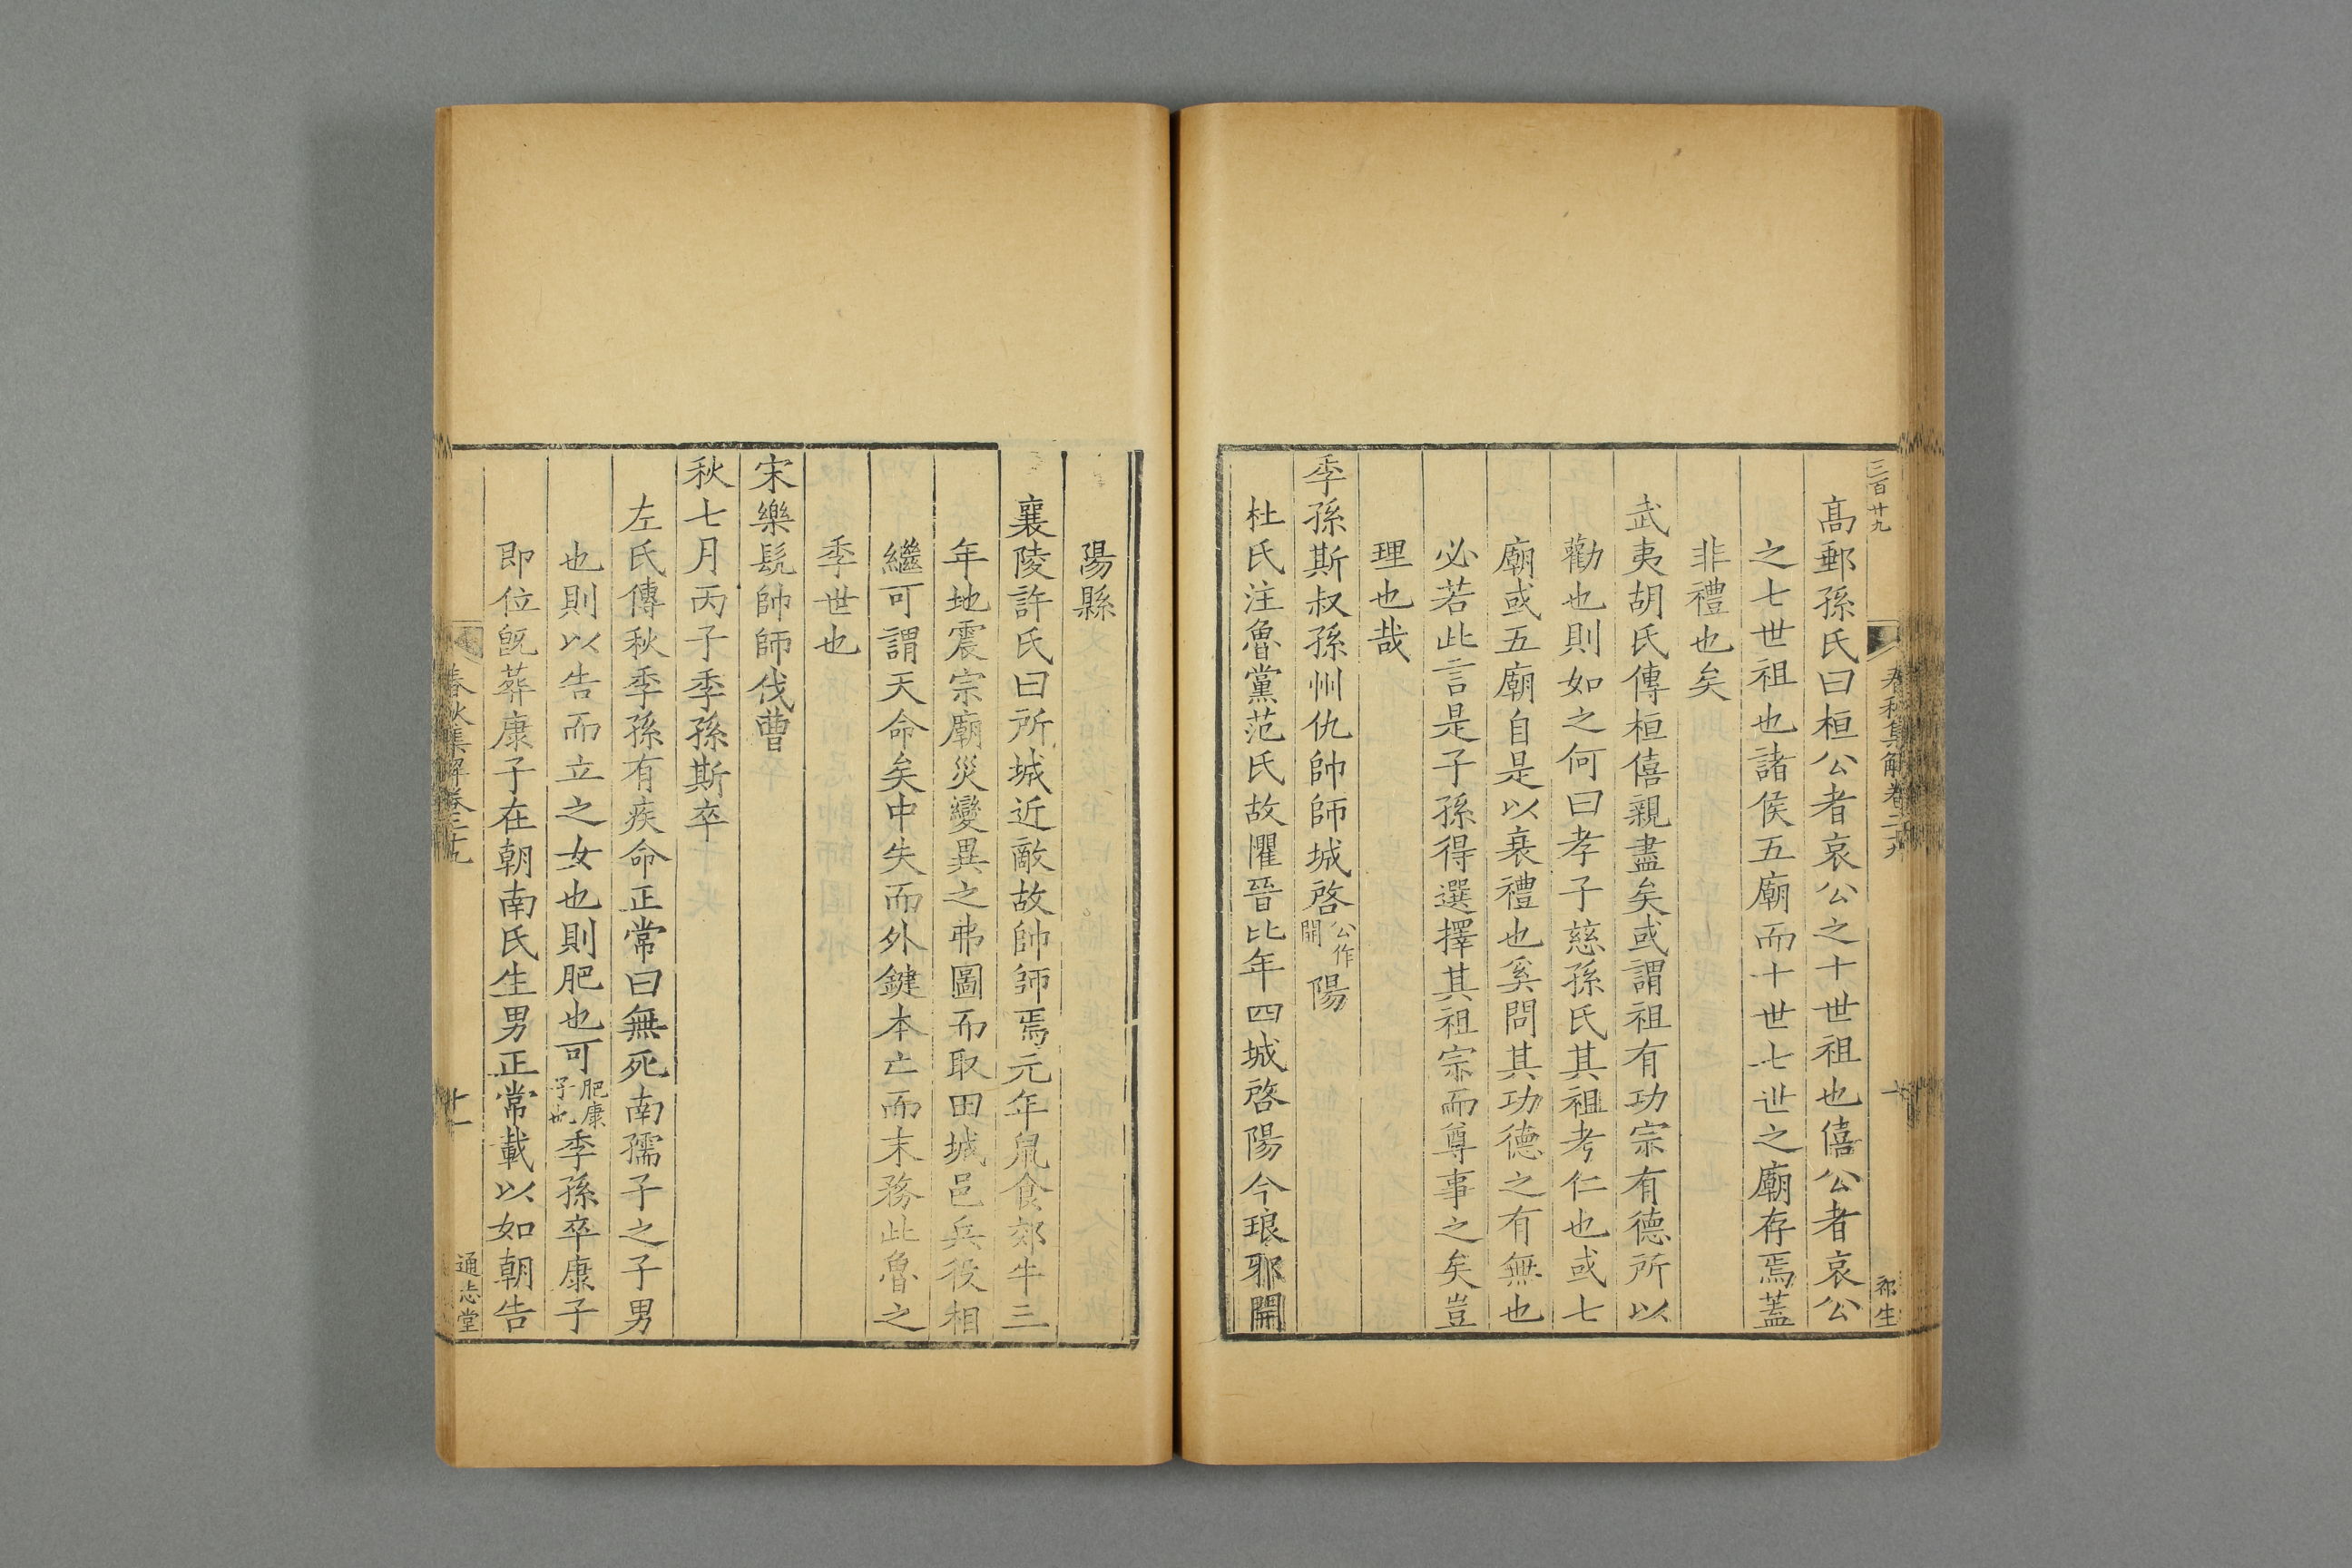 三百廿九
春秋集解卷二十九
十
高郵孫氏曰桓公者哀公之十世祖也僖公者哀公
之七世祖也諸侯五廟而十世七世之廟存焉蓋
非禮也矣
武夷胡氏傳桓僖親盡矣或謂祖有功宗有德所以
勸也則如之何曰孝子慈孫氏其祖考仁也或七
廟或五廟自是以衰禮也奚問其功德之有無也
必若此言是子孫得選擇其祖宗而尊事之矣豈
理也哉
季孫斯叔孫州仇帥師城啓公作開陽
杜氏注魯黨范氏故懼晉比年四城啓陽今琅邪開
陽縣
襄陵許氏曰所城近敵故帥師焉元年鼠食郊牛三
年地震宗廟災變異之弗圖而取田城邑兵役相
繼可謂天命矣中失而外鍵本亡而末務此魯之
季世也
宋樂髡帥師伐曹
秋七月丙子季孫斯卒
左氏傳秋季孫有疾命正常曰無死南孺子之子男
也則以告而立之女也則肥也可肥康子也季孫卒康子
即位旣葬康子在朝南氏生男正常載以如朝告
春秋集解卷二十九
十一
通志堂